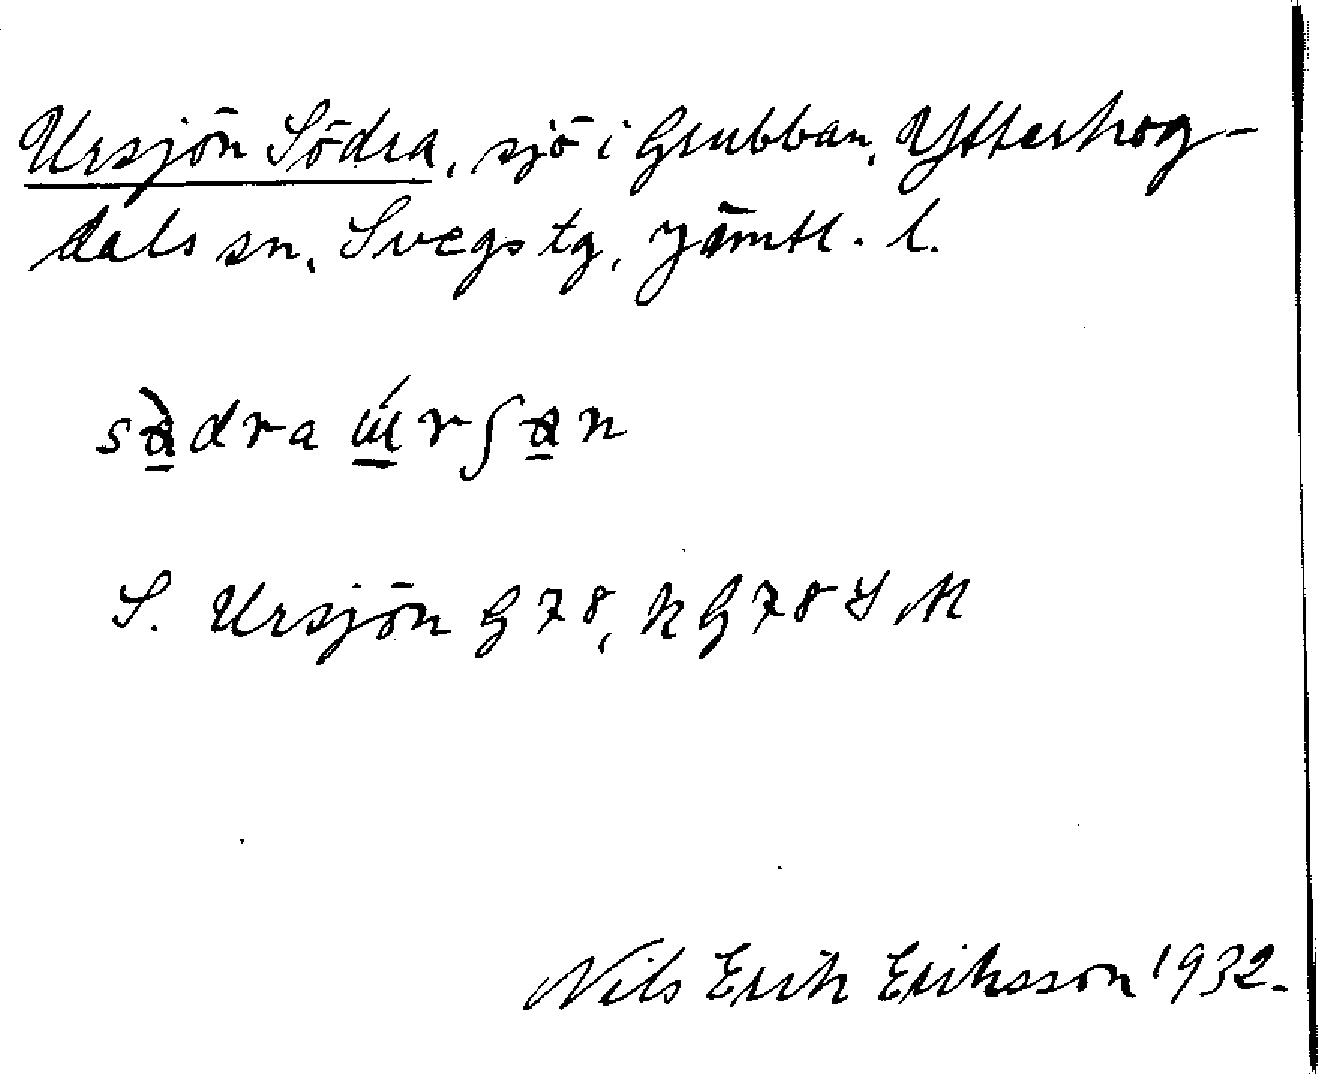 Ursjön Södra, sjö i Grubban, Ytterhog-
dals sn, Svegs tg, Jämtl. l.
sꜵ̀dra úrʃꜵn
S. Ursjön G 78, N G 78
Nils Erik Eriksson 1932.